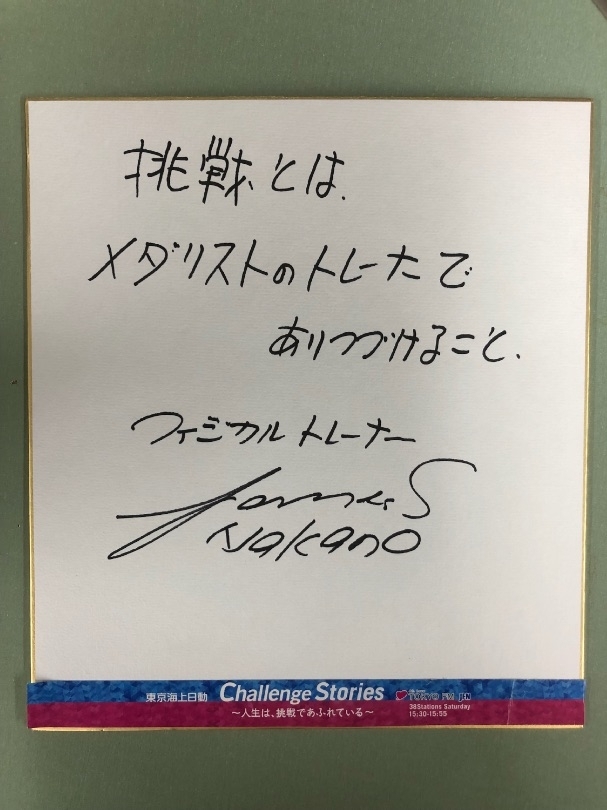 挑戦とは.
メダリストのトレーナーで
ありつづけること.
フィジカルトレーナー
James S
Nakano
東京海上日動 Challenge Stories
～人生は、挑戦であふれている～
TOKYO FM JFN
38Stations Saturday
15:30-15:55